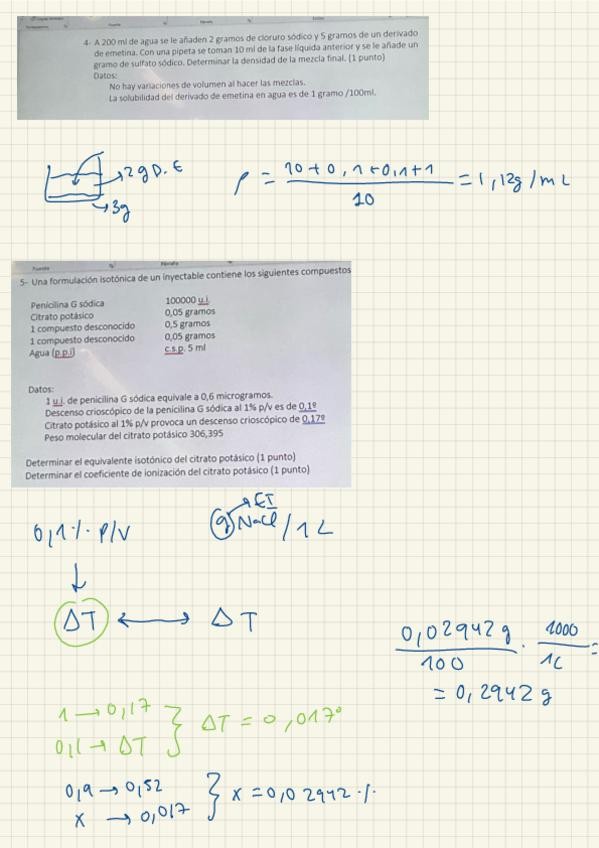 4- A 200 ml de agua se le añaden 2 gramos de cloruro sódico y 5 gramos de un derivado
de emetina. Con una pipeta se toman 10 ml de la fase líquida anterior y se le añade un
gramo de sulfato sódico. Determinar la densidad de la mezcla final. (1 punto)
Datos:
No hay variaciones de volumen al hacer las mezclas.
La solubilidad del derivado de emetina en agua es de 1 gramo /100ml.
→ 2g D. E
→ 3g
ρ = (10 + 0,1 + 0,1 + 1) / 10 = 1,12g/mL
5- Una formulación isotónica de un inyectable contiene los siguientes compuestos
Penicilina G sódica 100000 u.i.
Citrato potásico 0,05 gramos
1 compuesto desconocido 0,5 gramos
1 compuesto desconocido 0,05 gramos
Agua (p.p.i) c.s.p. 5 ml
Datos:
1 u.i. de penicilina G sódica equivale a 0,6 microgramos.
Descenso crioscópico de la penicilina G sódica al 1% p/v es de 0,1º
Citrato potásico al 1% p/v provoca un descenso crioscópico de 0,17º
Peso molecular del citrato potásico 306,395
Determinar el equivalente isotónico del citrato potásico (1 punto)
Determinar el coeficiente de ionización del citrato potásico (1 punto)
→ EI
0,1% P/V g NaCl / 1L
↓
ΔT ↔ ΔT
0,02942 g / 100 · 1000 / 1L =
= 0,2942 g
1 → 0,17
0,1 → ΔT } ΔT = 0,017º
0,9 → 0,52
x → 0,017 } x = 0,02942 %